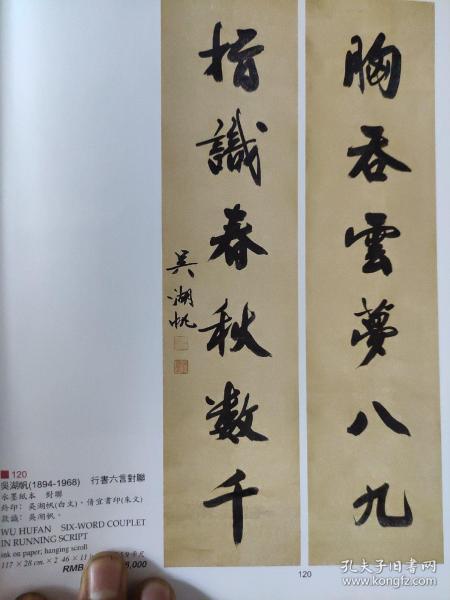 胸吞雲夢八九
指識春秋数千
吴湖帆
120
吳湖帆(1894-1968) 行書六言對聯
水墨紙本 對聯
鈐印：吳湖帆(白文)、倩宜書印(朱文)
款識：吳湖帆。
WU HUFAN SIX-WORD COUPLET
IN RUNNING SCRIPT
ink on paper; hanging scroll
117 × 28 cm. × 2 46 × 11
RMB 8,000
120
孔夫子旧书网